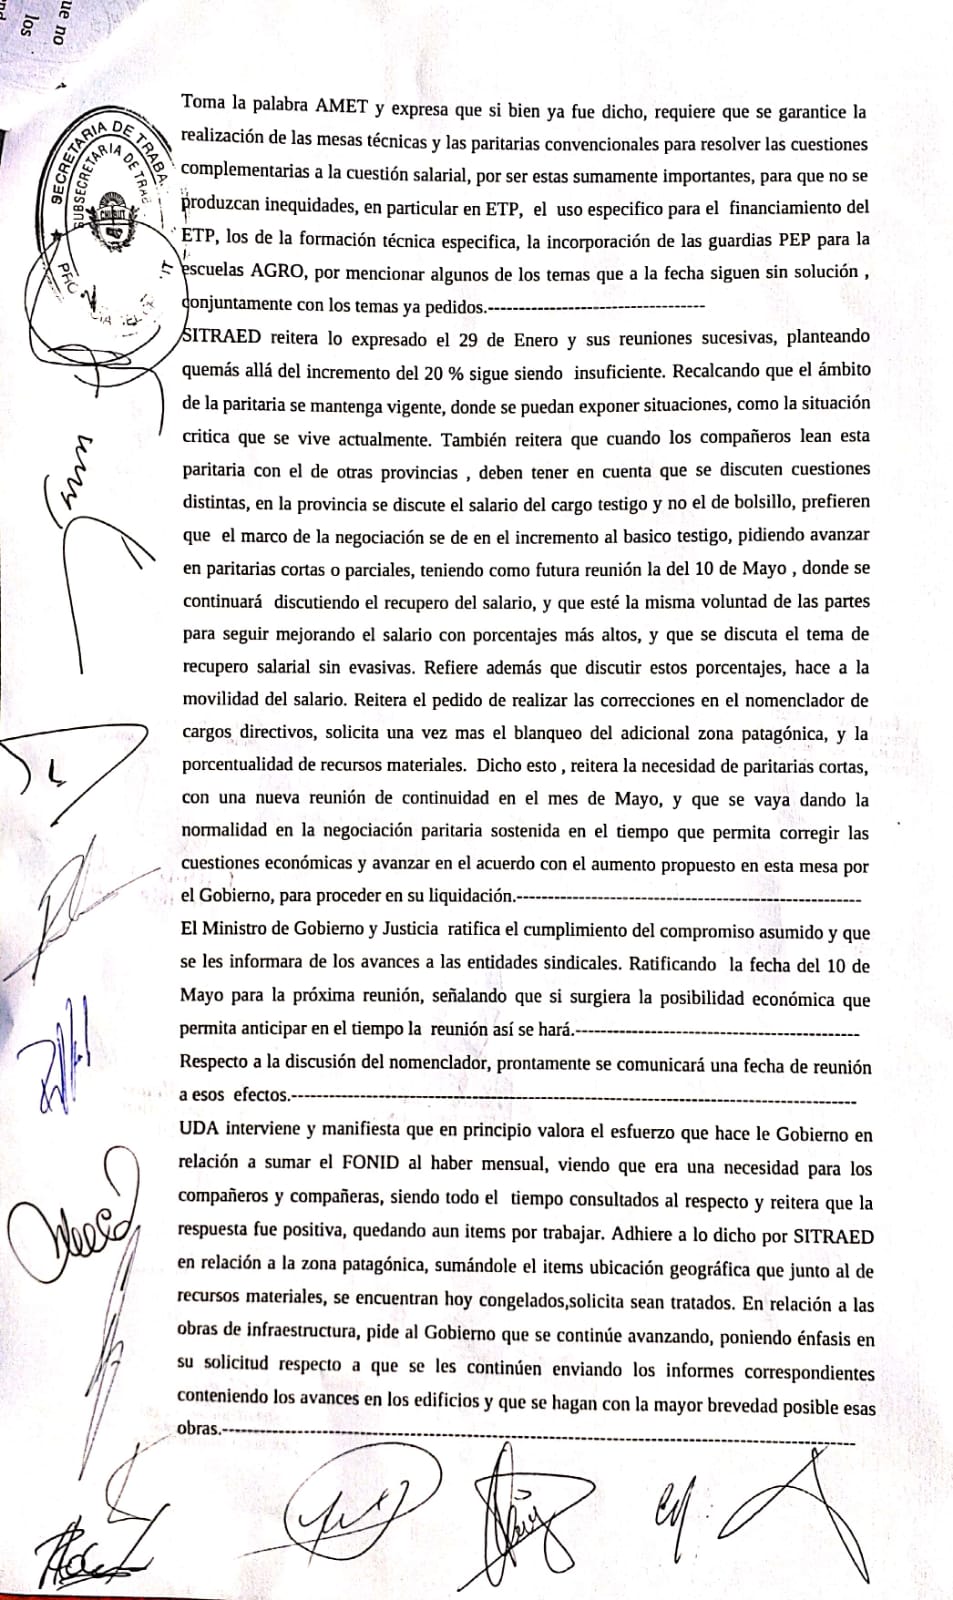 ue no
los
SECRETARIA DE TRABA
SUBSECRETARIA DE TRAB
CHUBUT
Toma la palabra AMET y expresa que si bien ya fue dicho, requiere que se garantice la
realización de las mesas técnicas y las paritarias convencionales para resolver las cuestiones
complementarias a la cuestión salarial, por ser estas sumamente importantes, para que no se
produzcan inequidades, en particular en ETP, el uso especifico para el financiamiento del
ETP, los de la formación técnica especifica, la incorporación de las guardias PEP para la
escuelas AGRO, por mencionar algunos de los temas que a la fecha siguen sin solución ,
conjuntamente con los temas ya pedidos.-----------------------------------
SITRAED reitera lo expresado el 29 de Enero y sus reuniones sucesivas, planteando
quemás allá del incremento del 20 % sigue siendo insuficiente. Recalcando que el ámbito
de la paritaria se mantenga vigente, donde se puedan exponer situaciones, como la situación
critica que se vive actualmente. También reitera que cuando los compañeros lean esta
paritaria con el de otras provincias , deben tener en cuenta que se discuten cuestiones
distintas, en la provincia se discute el salario del cargo testigo y no el de bolsillo, prefieren
que el marco de la negociación se de en el incremento al basico testigo, pidiendo avanzar
en paritarias cortas o parciales, teniendo como futura reunión la del 10 de Mayo , donde se
continuará discutiendo el recupero del salario, y que esté la misma voluntad de las partes
para seguir mejorando el salario con porcentajes más altos, y que se discuta el tema de
recupero salarial sin evasivas. Refiere además que discutir estos porcentajes, hace a la
movilidad del salario. Reitera el pedido de realizar las correcciones en el nomenclador de
cargos directivos, solicita una vez mas el blanqueo del adicional zona patagónica, y la
porcentualidad de recursos materiales. Dicho esto , reitera la necesidad de paritarias cortas,
con una nueva reunión de continuidad en el mes de Mayo, y que se vaya dando la
normalidad en la negociación paritaria sostenida en el tiempo que permita corregir las
cuestiones económicas y avanzar en el acuerdo con el aumento propuesto en esta mesa por
el Gobierno, para proceder en su liquidación.-------------------------------------------------------
El Ministro de Gobierno y Justicia ratifica el cumplimiento del compromiso asumido y que
se les informara de los avances a las entidades sindicales. Ratificando la fecha del 10 de
Mayo para la próxima reunión, señalando que si surgiera la posibilidad económica que
permita anticipar en el tiempo la reunión así se hará.---------------------------------------------
Respecto a la discusión del nomenclador, prontamente se comunicará una fecha de reunión
a esos efectos.------------------------------------------------------------------------------------------
UDA interviene y manifiesta que en principio valora el esfuerzo que hace le Gobierno en
relación a sumar el FONID al haber mensual, viendo que era una necesidad para los
compañeros y compañeras, siendo todo el tiempo consultados al respecto y reitera que la
respuesta fue positiva, quedando aun items por trabajar. Adhiere a lo dicho por SITRAED
en relación a la zona patagónica, sumándole el items ubicación geográfica que junto al de
recursos materiales, se encuentran hoy congelados,solicita sean tratados. En relación a las
obras de infraestructura, pide al Gobierno que se continúe avanzando, poniendo énfasis en
su solicitud respecto a que se les continúen enviando los informes correspondientes
conteniendo los avances en los edificios y que se hagan con la mayor brevedad posible esas
obras.----------------------------------------------------------------------------------------------------